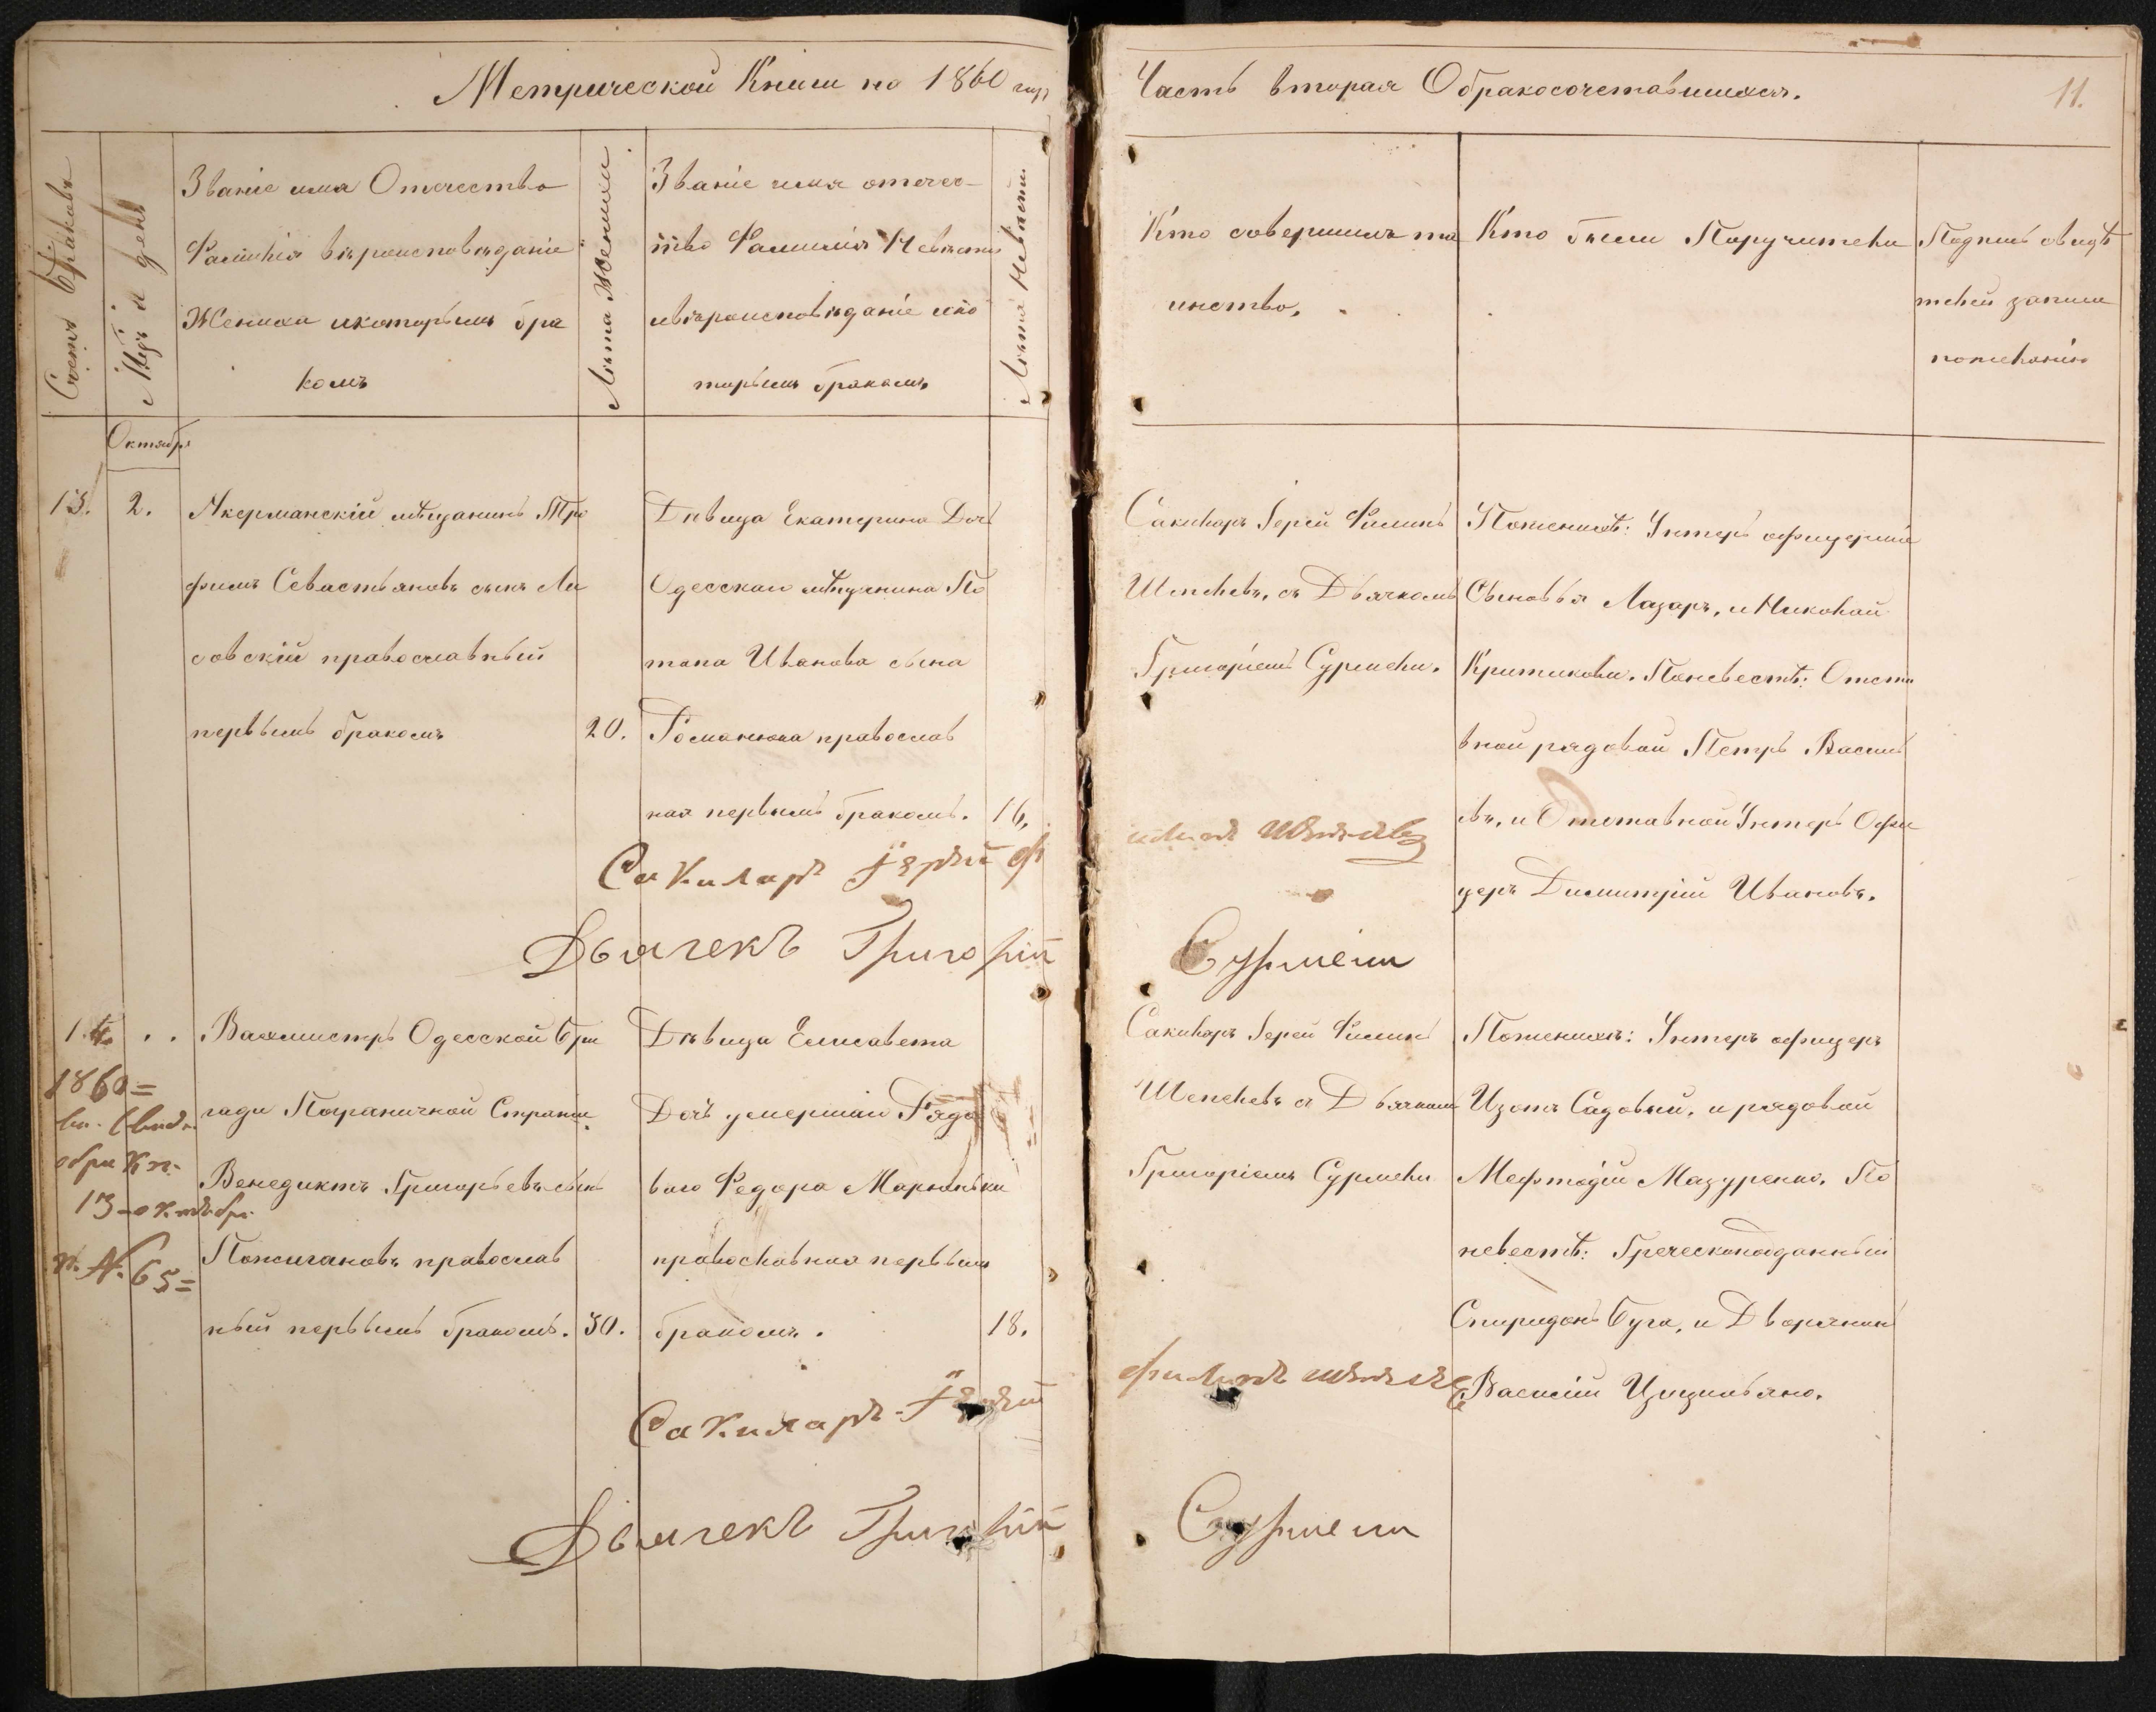 Метрической Книги на 1860 годъ
Часть вторая О бракосочетавшихся.
11.
Счетъ браковъ
Мѣсяцъ и день
Званіе имя Отечество
Фамилія вѣроисповѣданіе
Жениха и которымъ бра
комъ
Лѣта Жениха
Званіе имя отечес-
тво Фамилія Невѣсты
и вѣроисповѣданіе и ко
торымъ бракомъ
Лѣта Невѣсты
Кто совершилъ та
инство.
Кто были Поручители
Подпись свидѣ
телей записи
по желанію
Октябр.
13.
2.
Акерманскій мѣщанинъ Тро
фимъ Севастьяновъ сынъ Ли
совскій православный
первымъ бракомъ
20.
Дѣвица Екатерина Дочь
Одесскаго мѣщанина По
тапа Иванова сына
Романюка православ
ная первымъ бракомъ.
16.
Сакиларъ Іерей Филипъ
Шепелевъ, съ Дьячкомъ
Григоріемъ Сурмели.
По женихѣ: Унтеръ офицерскіе
Сыновья Лазаръ, и Николай
Критиковы. По невестѣ: Отста
вной рядовой Петръ Василь
евъ, и Отставной Унтеръ Офи
церъ Димитрій Ивановъ.
Сакиларъ Іерѣй Ф
Дьячекъ Григорій
Сурмели
14.
Вахмистръ Одесской Бри
гады Пограничной Стражи
Венедиктъ Григорьевъ сынъ
Пожигановъ православ
ный первымъ бракомъ.
30.
1860=
13 октября
N. 65=
Дѣвица Елисавета
Дочь умершаго Рядо
ваго Федора Мартынька
православная первымъ
бракомъ.
18.
Сакиларъ Іерей Филипъ
Шепелевъ съ Дьячкомъ
Григоріемъ Сурмели
По женихѣ: Унтеръ офицеръ
Изотъ Садовый, и рядовой
Мефтодій Мазуренко. По
невестѣ: Греческоподданный
Спиридонъ Буга, и Дворянинъ
Василій Цицильяно.
Сакиларъ Іерѣй
Филипъ Шепелевъ
Дьячекъ Григорій
Сурмели